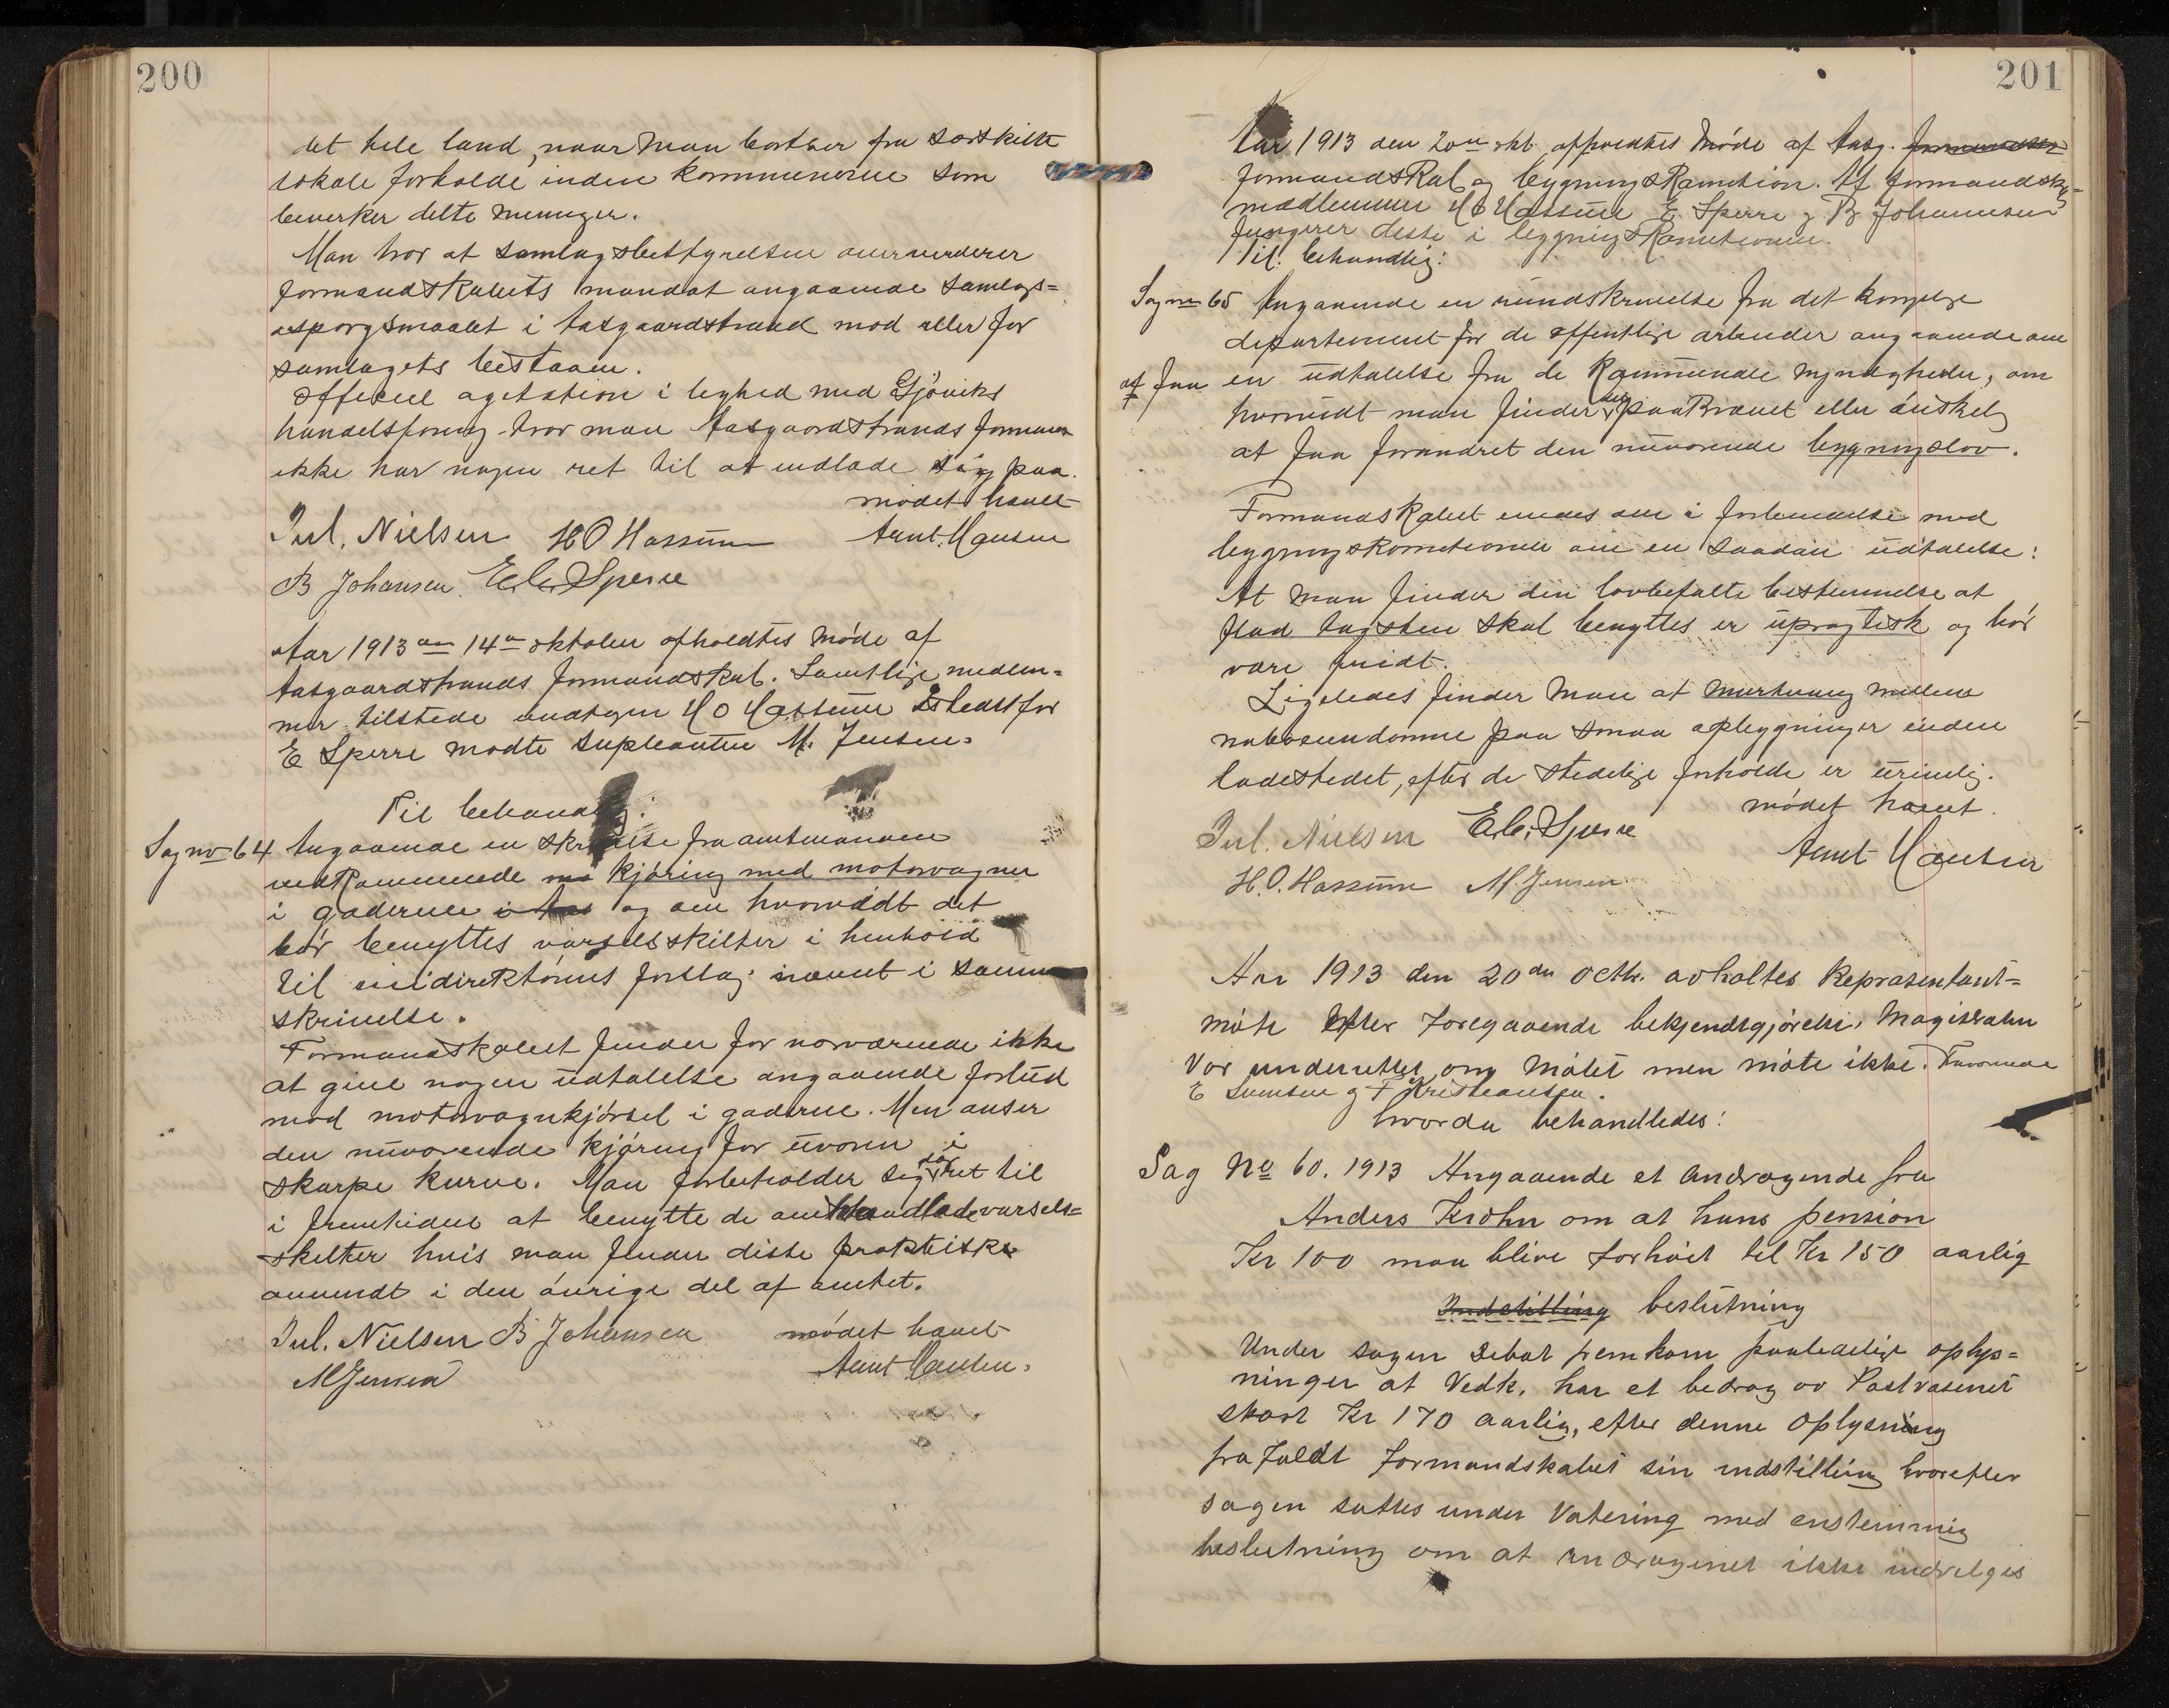 200
det hele land, naar man bortser fra særskilte
lokale forholde inden kommunerne som
bevirker delte meninger.
Man tror at samlagsbestyrelsen overvurderer
formandskabets mandat angaaende samlags=
spørgsmaalet i Aasgaardstrand mod eller for
samlagets bestaaen.
Officiel agetation i lighed med Gjöviks
handelsforenig tror man Aasgaardstrands formandsk
ikke har nogen ret til at indlade sig paa.
mødet hævet
Jul. Nielsen HO Hassum Arnt. Hansen
B Johansen. E.C. Sperre
Aar 1913 den 14de oktober afholdtes Møde af
Aasgaardstrands formandskab. Samtlige medlem=
mer tilstede undtagen H O Hassum Istedetfor
E Sperre mødte supleanten M. Jensen.
Til behandlig:
Sag no 64 Angaaende en skrivelse fra amtmannen
vedkommende kjøring med motorvagner
i gaderne og om hvorvidt det
bør benyttes varselsskilter i henhold
til veidirektørens forslag nævnt i samme
skrivelse.
Formandskabet finder for nærværende ikke
at give nogen udtalelse angaaende forbud
mod motorvognkjørsel i gaderne. Men anser
den nuværende kjøring for uvorn i
skarpe kurve. Man forbeholder sig dog ret til
i fremtiden at benytte de omhandlede varsels=
skilter hvis man finder disse praktiske
anvendt i den øvrige del af amtet.
Jul. Nielsen B Johansen mødet hævet
M Jensen Arnt Hansen.
201
Aar 1913 den 20de okt. afholdtes Møde af Aasg. formandska
formandskab og bygningskomition. Af formandsk=
medlemmer H O Hassum E. Sperre og B Johannsen
fungerer disse i bygnigskomitionen.
Til behandlig:
Sag no 65 Angaaende en rundskrivelse fra det kongelige
departement for de offentlige arbeider angaaende om
at faa en udtalelse fra de kommunale myndigheder, om
hvorvidt man finder det paakrævet eller ønskelig
at faa forandret den nuværende bygningslov.
Formandskabet enedes om i forbindelse med
bygningskomitionen om en saadan udtalelse:
At man finder den lovbefalte bestemmelse at
flad tagsten skal benyttes er upragtisk og bør
være fridt.
Ligeledes finder man at murtvang mellem
naboeiendomme paa smaa opbygninger inden
ladestedet, efter de stedelige forholde er urimelig.
mødet hævet.
Jul. Nielsen E.C. Sperre Arnt Hansen
H.O. Hassum M. Jensen
Aar 1913 den 20de Octbr. avholtes Repræsentant=
møte Efter foregaaende bekjendtgjørelse, Magistraten
Var underrettet om Møtet men møte ikke. Fraværende
E Svensen og F Kristiansen.
hvorda behandledes:
Sag No 60. 1913 Angaaende et andragende fra
Anders Krohn om at hans pension
Kr 100 maa blive forhøiet til Kr 150 aarlig
Indstilling beslutning
Under sagen debat fremkom paalidelige oplys=
ninger at Vedk. har et bedrag av Postvæsenet
stort Kr 170 aarlig, efter denne Oplysning
frafaldt formandskabet sin indstilling hvorefter
sagen sattes under Votering med enstemmig
beslutning om at andraginet ikke indvilges